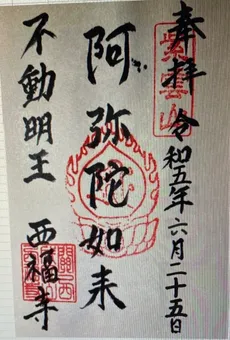 奉拝 令和五年六月二十五日
紫雲山
阿弥陀如来
不動明王 西福寺